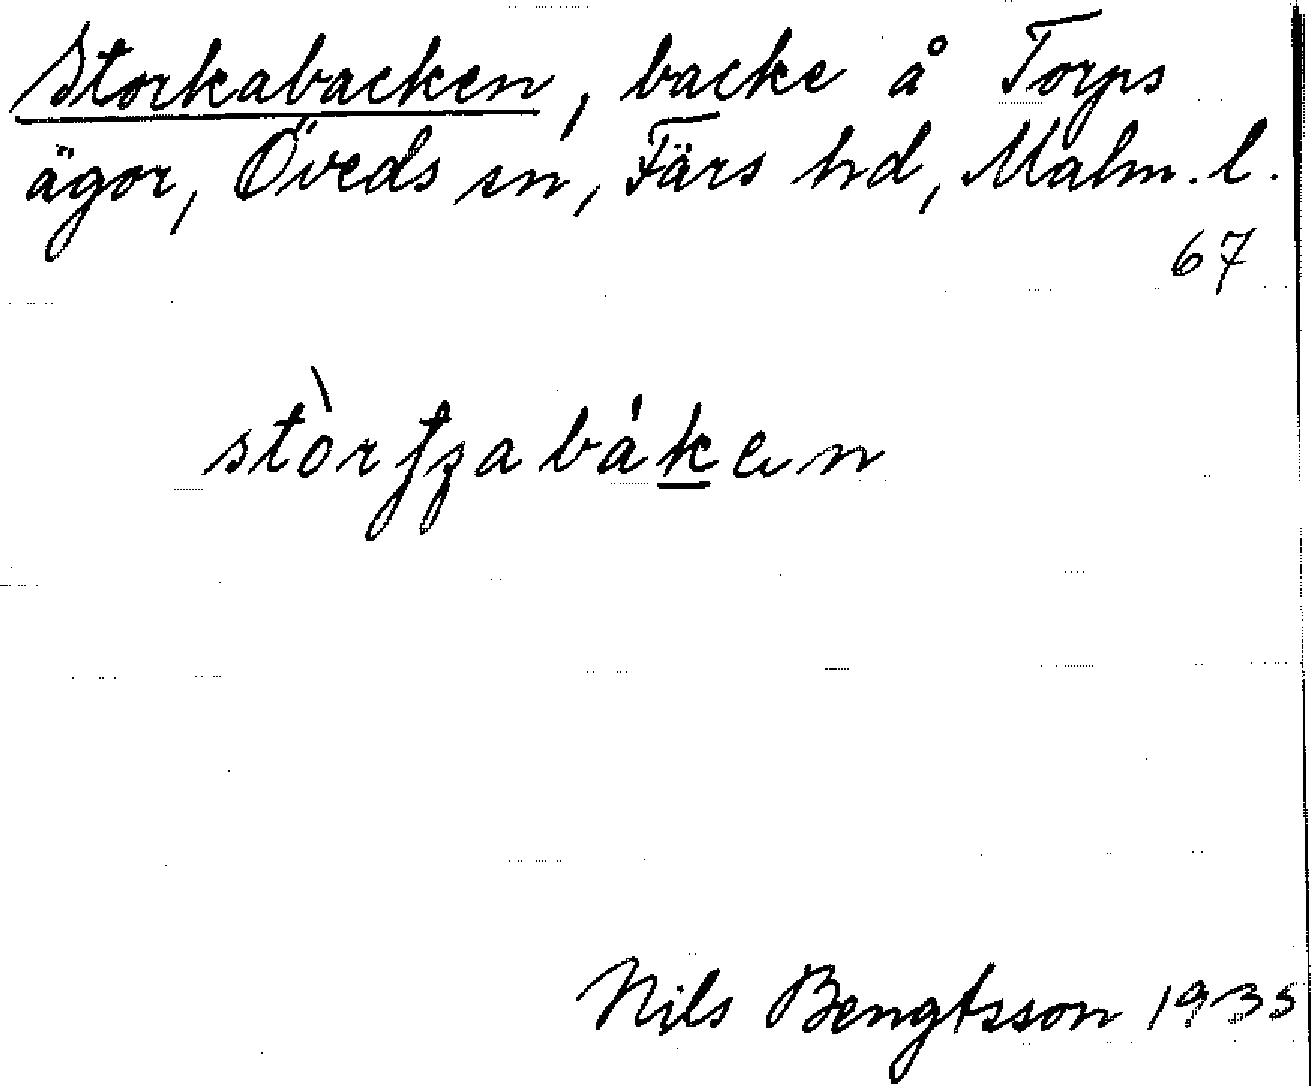 Storkabacken, backe å Torps
ägor, Öveds sn, Färs hd, Malm. l.
67
Nils Bengtsson 1935